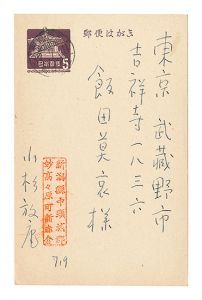 郵便はがき
日本郵便
5
東京 武蔵野市
吉祥寺一八三六
飯田莫哀様
新潟県中頸城郡
妙高々原町新赤倉
小杉放庵
7/19